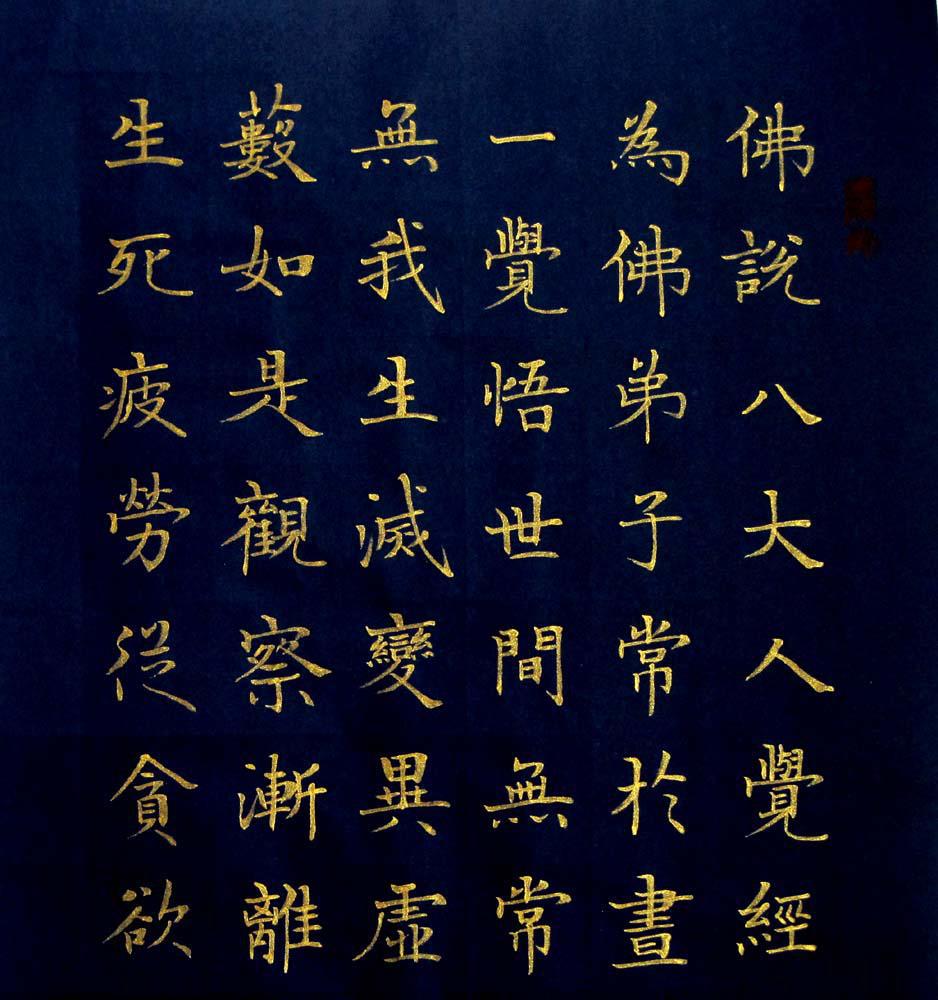 佛說八大人覺經
為佛弟子常於晝
一覺悟世間無常
無我生滅變異虛
藪如是觀察漸離
生死疲勞從貪欲